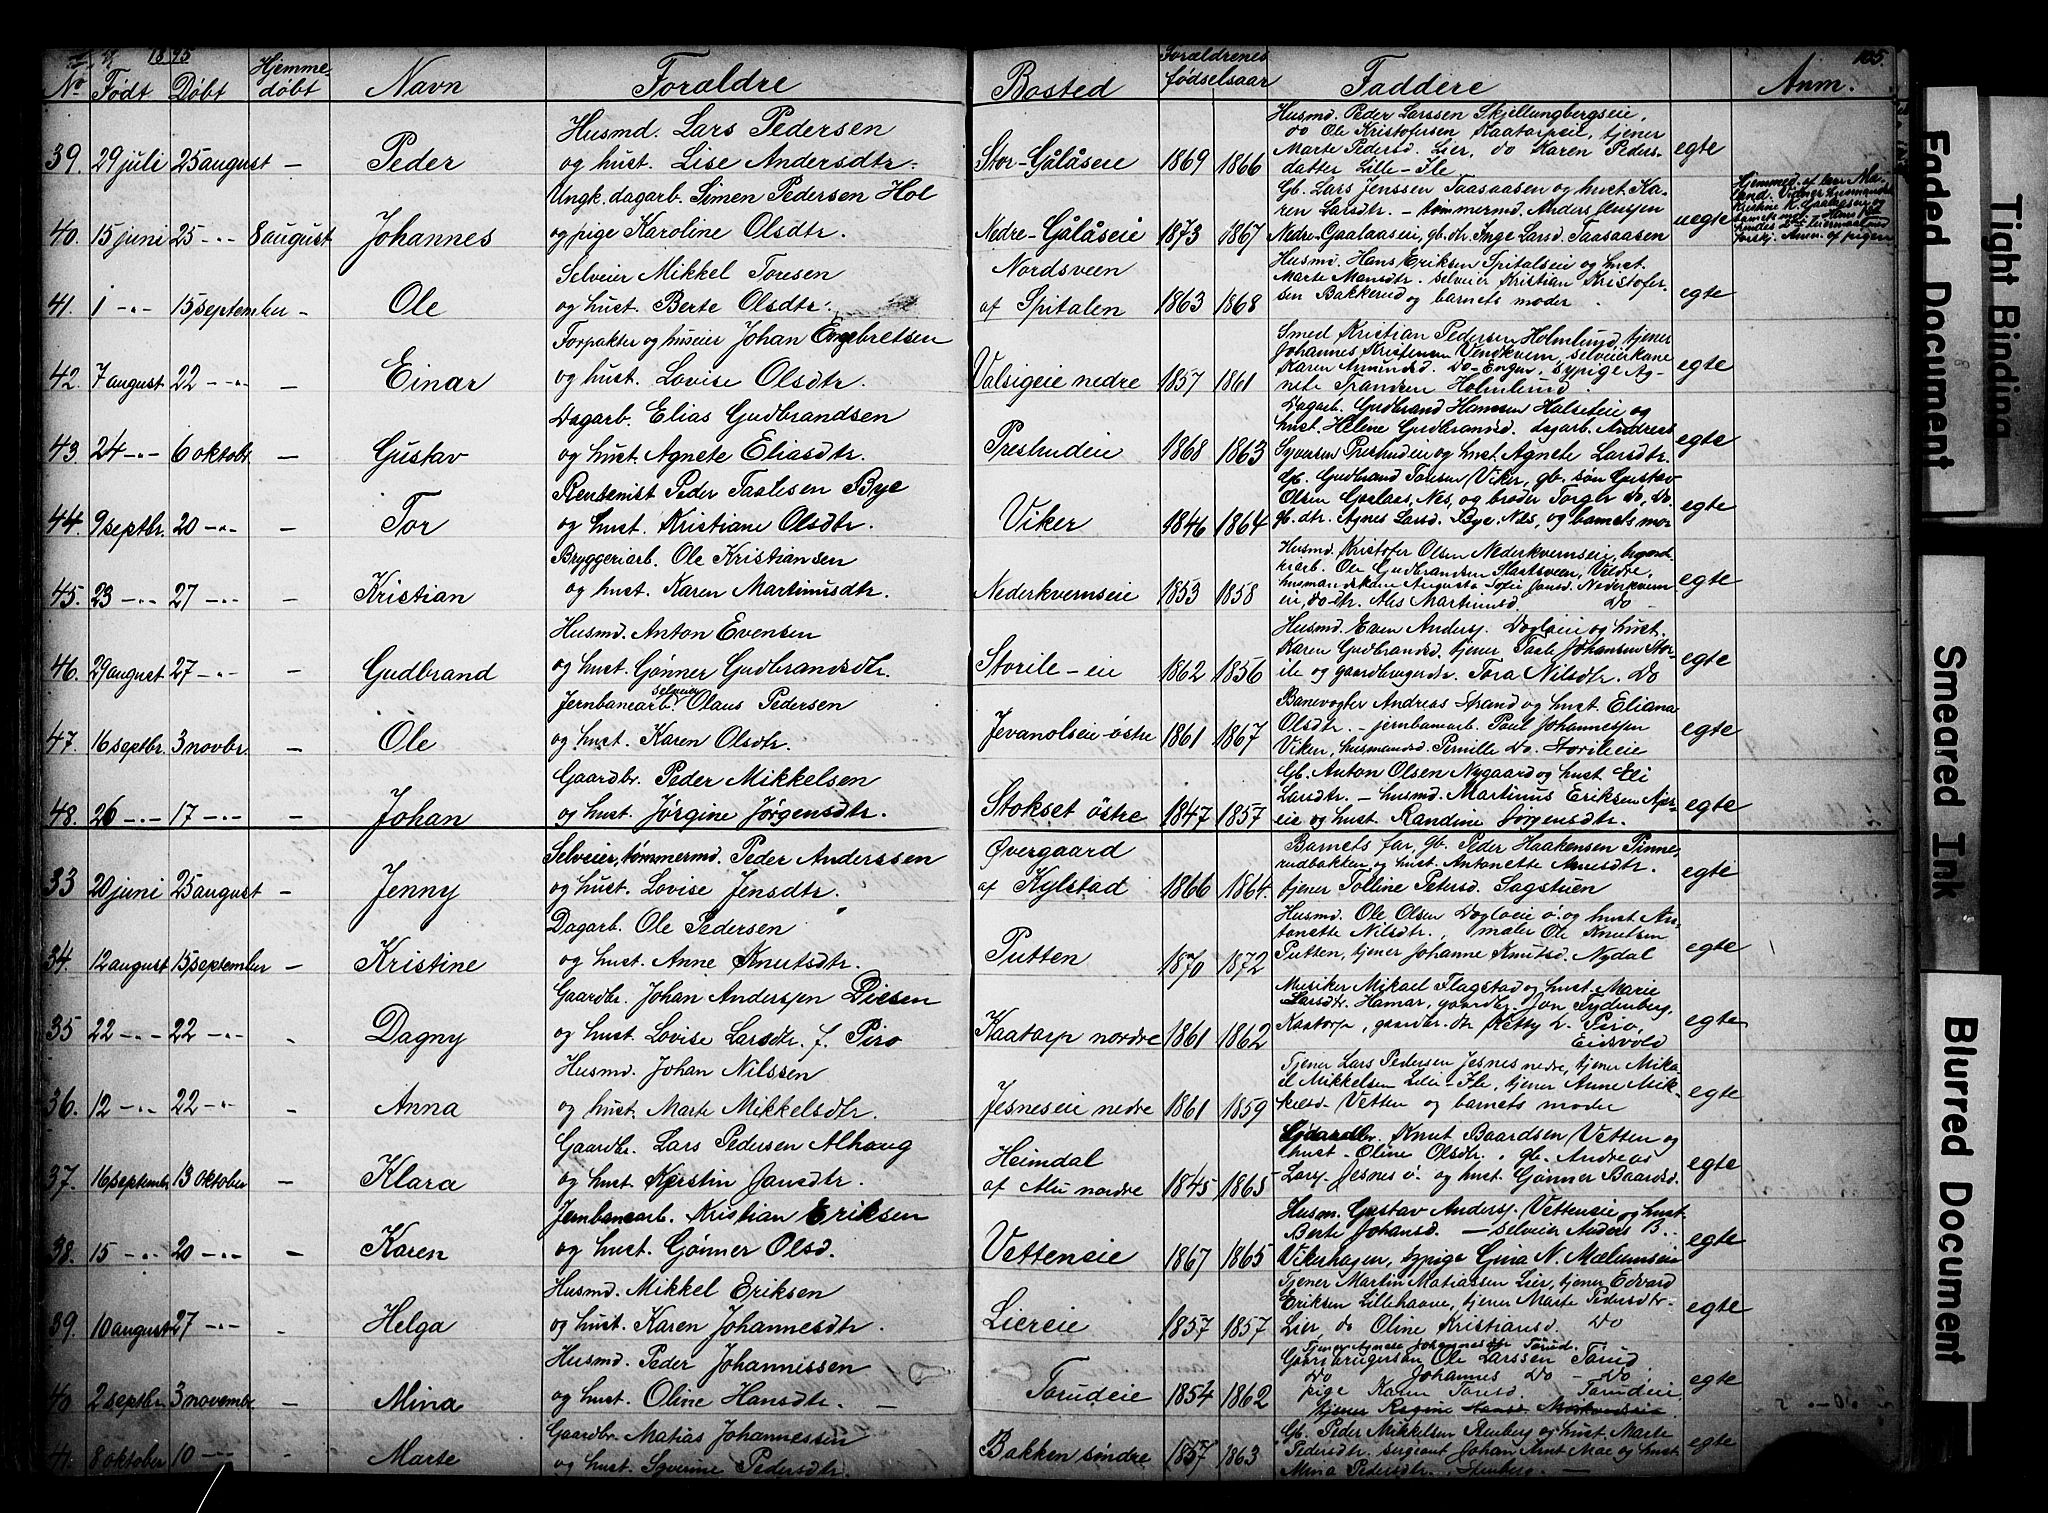 1895
105.
No Født Døbt Hjemmedøbt Navn Forældre Bosted Forældrenes fødselsaar Faddere Anm.
39. 29 juli 25 august – Peder
Husmd. Lars Pedersen
og hust. Lise Andersdtr.
Stor-Gålåseie 1869 1866
Husmd. Peder Larssen Skjellungbergseie,
do Ole Kristofersen Kaatorpseie, tjener
Marte Pedersd. Lier, do Karen Peders-
datter Lille-Ile
egte
40. 15 juni 25 -"- 8 august Johannes
Ungk. dagarb. Simen Pedersen Hol
og pige Karoline Olsdtr.
Nedre-Gålåseie 1873 1867
Gb. Lars Jenssen Taasaasen og hust. Ka-
ren Larsdtr. – tømmermd. Anders Jenssen
Nedre-Gaalaaseie, gb. dtr. Inge Larsd. Taasaasen
uegte
41. 1 -"- 15 september – Ole
Selveier Mikkel Toresen
og hust. Berte Olsdtr.
Nordsveen
af Spitalen 1863 1868
Husmd. Hans Eriksen Spitalseie og hust.
Marte Hansdtr. selveier Kristian Kristofer-
sen Bakkerud og barnets moder
egte
42. 7 august 22 -"- – Einar
Forpakter og huseier Johan Engebretsen
og hust. Lovise Olsdtr.
Valsigeie nedre 1857 1861
Smed Kristian Pedersen Holmlund, tjener
Johannes Kristensen Vendkvern, selveierkone
Karen Amundsd. Do-Engen, sypige Ag-
nete Frandsen Holmlund
egte
43. 24 -"- 6 oktobr – Gustav
Dagarb. Elias Gudbrandsen
og hust. Agnete Eliasdtr.
Presthudeie 1868 1863
Dagarb. Gudbrand Hanssen Halseteie og
hust. Helene Gudbrandsd. dagarb. Andreas
Syversen Presthudeie og hust. Agnete Larsdtr.
egte
44. 9 septbr. 20 -"- – Tor
Rentenist Peder Taalesen Bye
og hust. Kristiane Olsdtr.
Viker 1846 1864
Gb. Gudbrand Toresen Viker, gb. søn Gustav
Olsen Gaalaas, Nes, og broder Torger do, do
gb. dtr. Agnes Larsd. Bye, Nes, og barnets mor
egte
45. 23 -"- 27 -"- – Kristian
Bryggeriarb. Ole Kristiansen
og hust. Karen Martinusdtr.
Nederkvernseie 1853 1858
Husmd. Kristofer Olsen Nederkvernseie,
riarb. Ole Gudbrandsen Slaatsveen, Veldre,
husmandskone Augusta Sofie Jansd. Nederkvern-
eie, do-dtr. Martinusd. Do
egte
46. 29 august 27 -"- – Gudbrand
Husmd. Anton Evensen
og hust. Gønner Gudbrandsdtr.
Storile-eie 1862 1856
Husmd. Even Anders. Dogloeie og hust.
Karen Gudbrandsd. tjener Taale Johansen Stor-
ile og gaardbrugerdtr. Tora Nilsdtr. Do
egte
47. 16 septbr. 3 novbr. – Ole
Jernbanearb. selveier Olaus Pedersen
og hust. Karen Olsdtr.
Jevanolseie-østre 1861 1867
Banevogter Andreas Strand og hust. Eliana
Olsdtr. – jernbanearb. Paul Johannessen
Viker, husmandsd. Pernille Do. Storileeie
egte
48. 26 -"- 17 -"- – Johan
Gaardbr. Peder Mikkelsen
og hust. Jørgine Jørgensdtr.
Stokset østre 1847 1857
Gb. Anton Olsen Nygaard og hust. Eli
Larsdtr. – husmd. Martinus Eriksen
eie og hust. Randine Jørgensdtr.
egte
33 20 juni 25 august – Jenny
Selveier, tømmermd. Peder Anderssen
og hust. Lovise Jensdtr.
Øvergaard
af Kylstad 1866 1864.
Barnets far, gb. Peder Haakensen Finne-
rudbakken og hust. Antonette Anusdtr.
tjener Tolline Petersd. Sagstuen
egte
34. 12 august 15 september – Kristine
Dagarb. Ole Pedersen
og hust. Anne Knutsdtr.
Putten 1870 1872
Husmd. Ole Olsen Dogloeie ø. og hust An-
tonette Nilsdtr., maler Ole Knutsen
Putten, tjener Johanne Knutsd. Nydal
egte
35 22 -"- 22 -"- - Dagny
Gaardbr. Johan Anderssen Diesen
og hust. Lovise Larsdtr. f. Piro
Kaatorp nordre 1861 1862
Musiker Mikael Flagstad og hust. Marie
Larsdtr. Hamar, gaardbr. Jon Frydenberg,
Kaatorp, gaardbr. dtr. Ketty L. Piro,
Eidsvold
egte
36. 12 -"- 22 -"- - Anna
Husmd. Johan Nilssen
og hust. Marte Mikkelsdtr.
Jesneseie nedre 1861 1859
Tjener Lars Pedersen Jesnes nedre, tjener Mika-
el Mikkelsen Lille-Ile, tjener Anne Mik-
kelsd. Vetten og barnets moder
egte
37. 16 septembr 13 oktober – Klara
Gaardbr. Lars Pedersen Alhaug
og hust. Kjerstin Jansdtr.
Heimdal
af Alu nordre 1845 1865
Gaardbr. Knut Baardsen Vetten og
hust. Oline Olsdtr., gb. Andreas
Lars. Jesnes ø. og hust. Gønner Baardsd.
egte
38. 15 -"- 20 -"- – Karen
Jernbanearb. Kristian Eriksen
og hust. Gønner Olsd.
Vetteneie 1867 1865
Husm. Gustav Anders. Vetteneie og hust.
Berte Johansd. – selveier Anders B.
Vikerhagen, sypige Gina N. Mælumseie
egte
39. 10 august 27 -"- - Helga
Husmd. Mikkel Eriksen
og hust. Karen Johannesdtr.
Liereie 1857 1857
Tjener Martin Matiassen Lier, tjener Edvard
Eriksen Lillehaave, tjener Marte Pedersdtr.
Lier, do Oline Kristiansd. Do
egte
40 2 septbr. 3 novembr – Mina
Husmd. Peder Johannessen
og hust. Oline Hansdtr. –
Torudeie 1854 1862
Gaardbrugersøn Ole Larssen Torud
Do Johannes Do – Do
pige Karen Toresd. Torudeie
egte
41. 8 oktober 10 -"- – Marte
Gaardbr. Matias Johannessen
og hust. Syverine Pedersdtr.
Bakken søndre 1857 1863
Gb. Peder Mikkelsen Stenberg og hust. Marte
Pedersdtr. sergeant Johan Arnt Moe og hust.
Mina Pedersdtr., Stenberg. –
egte
Faded Document
Tight Binding
Smeared Ink
Blurred Document